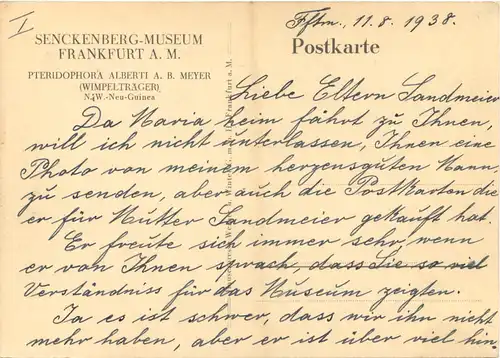 I
Fftm., 11.8.1938.
SENCKENBERG-MUSEUM
FRANKFURT A. M.
Postkarte
PTERIDOPHORA ALBERTI A. B. MEYER
(WIMPELTRÄGER)
N.W.-Neu-Guinea
Liebe Eltern Landmeier
Da Maria heim fährt zu Ihnen,
will ich nicht unterlassen, Ihnen eine
Photo von meinem herzensguten Mann,
zu senden, aber auch die Postkarten die
er für Mutter Landmeier gekauft hat.
Er freute sich immer sehr, wenn
er von Ihnen sprach, dass Sie so viel
Verständniss für das Museum zeigten.
Ja es ist schwer, dass wir ihn nicht
mehr haben, aber er ist über viel hin.
Frankfurt a. M.